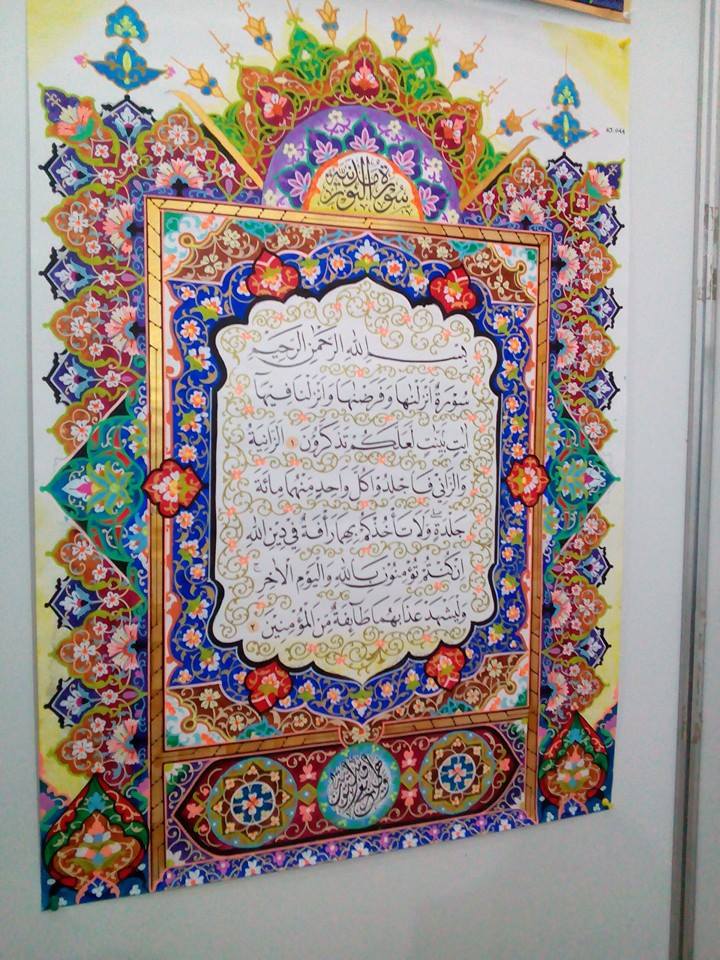 سورة النور مدنية
بِسْمِ اللهِ الرَّحْمٰنِ الرَّحِيْمِ
سُوْرَةٌ اَنْزَلْنٰهَا وَفَرَضْنٰهَا وَاَنْزَلْنَا فِيْهَآ
اٰيٰتٍ بَيِّنٰتٍ لَعَلَّكُمْ تَذَكَّرُوْنَ ١ اَلزَّانِيَةُ
وَالزَّانِيْ فَاجْلِدُوْا كُلَّ وَاحِدٍ مِنْهُمَا مِائَةَ
جَلْدَةٍ ۖ وَلَا تَأْخُذْكُمْ بِهِمَا رَأْفَةٌ فِيْ دِيْنِ اللهِ
اِنْ كُنْتُمْ تُؤْمِنُوْنَ بِاللهِ وَالْيَوْمِ الْاٰخِرِ ۚ
وَلْيَشْهَدْ عَذَابَهُمَا طَآئِفَةٌ مِنَ الْمُؤْمِنِيْنَ ٢